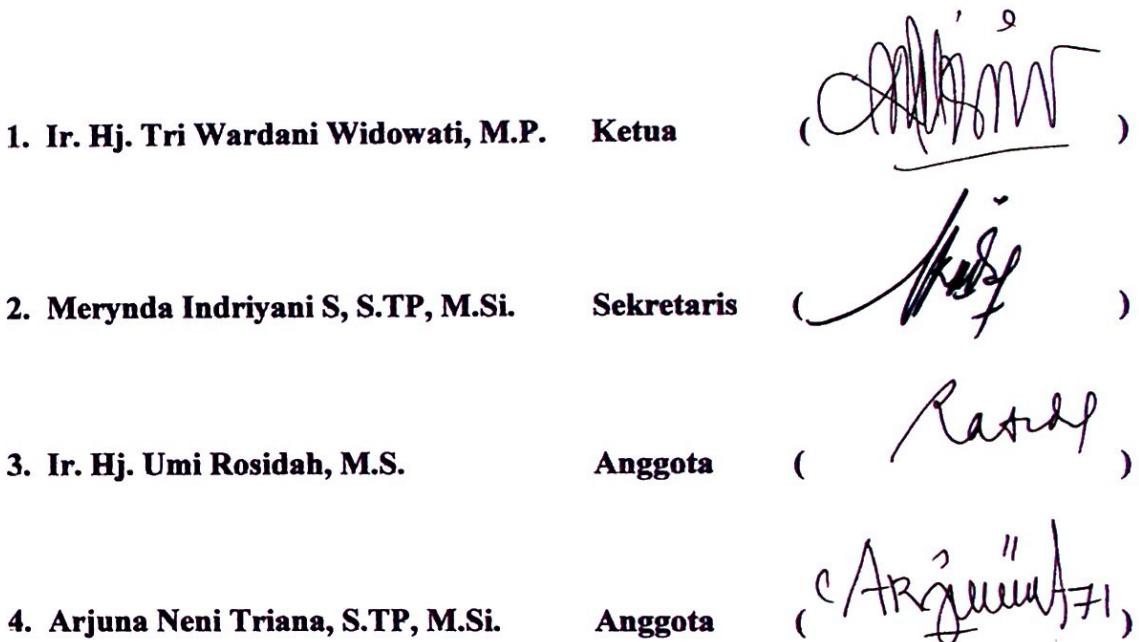 1. Ir. Hj. Tri Wardani Widowati, M.P. Ketua ( )
2. Merynda Indriyani S, S.TP, M.Si. Sekretaris ( )
3. Ir. Hj. Umi Rosidah, M.S. Anggota ( )
4. Arjuna Neni Triana, S.TP, M.Si. Anggota ( )